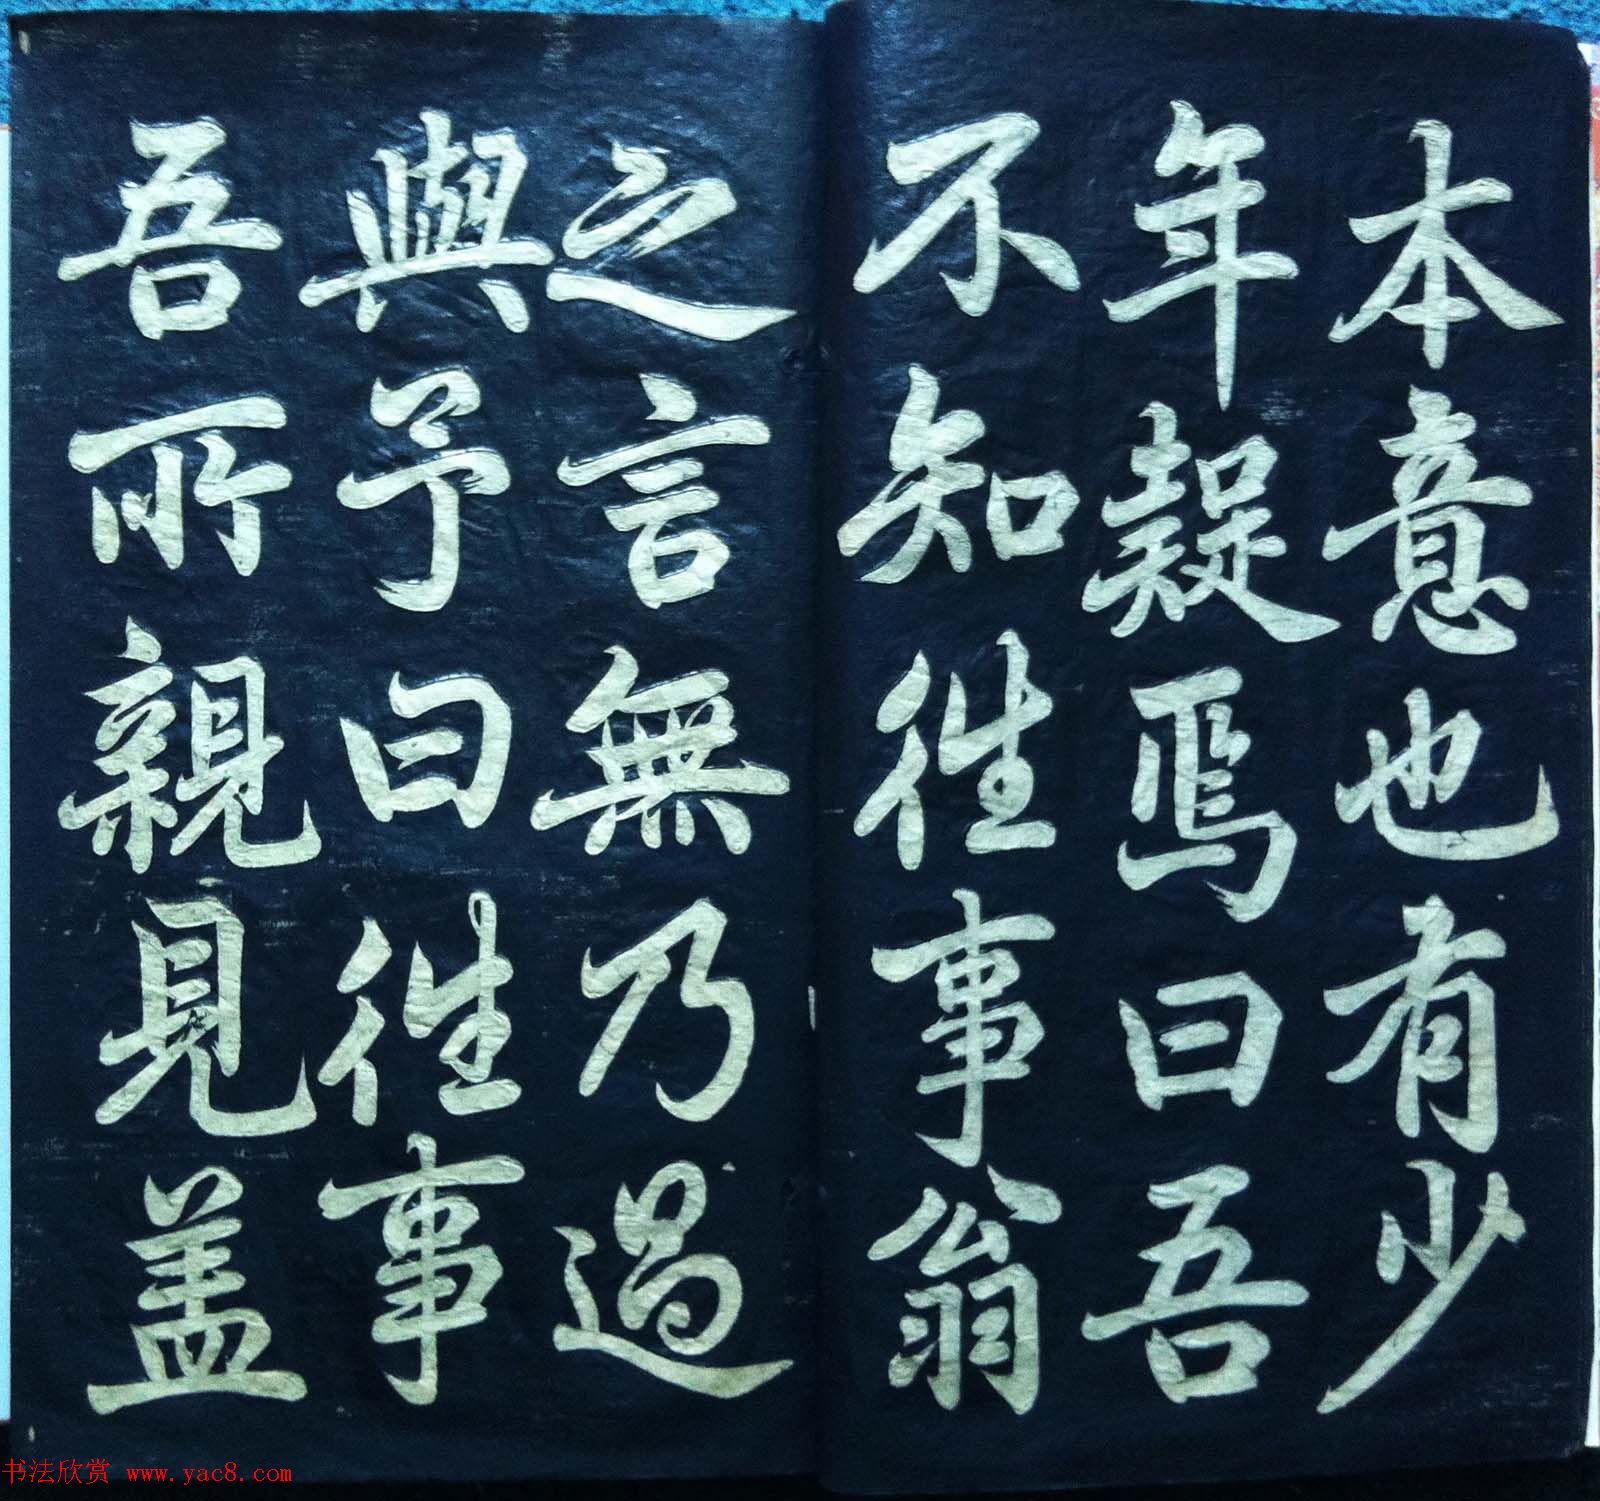 本意也有少
年疑焉曰吾
不知往事翁
之言無乃過
與予曰往事
吾所親見蓋
书法欣赏 www.yac8.com